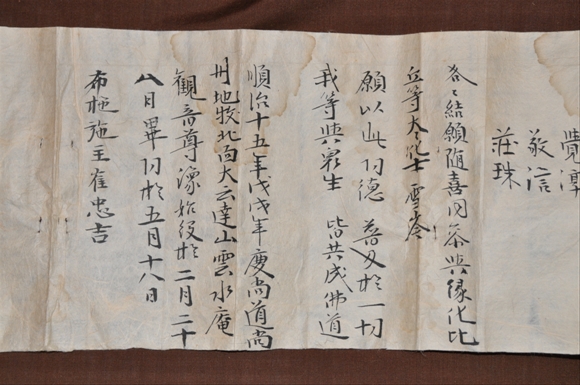 覺淳
敬信
莊珠
各〻結願随喜同叅與緣化比
丘等大化士 雪岑
願以此功德 普及於一切
我等與衆生 皆共成佛道
順治十五年戊戌年慶尚道尚
州地牧北面大云達山雲水庵
觀音尊像始役於二月二十
八日畢功於五月十八日
布施施主崔忠吉